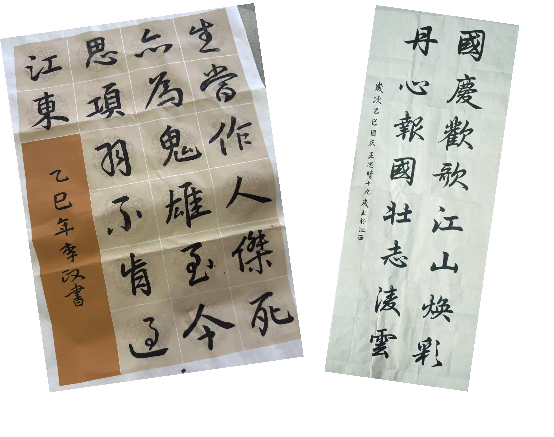 生當作人傑死
亦為鬼雄至今
思項羽不肯過
江東
乙巳年李政書
國慶歡歌江山煥彩
丹心報國壯志淩雲
歲次乙巳國慶